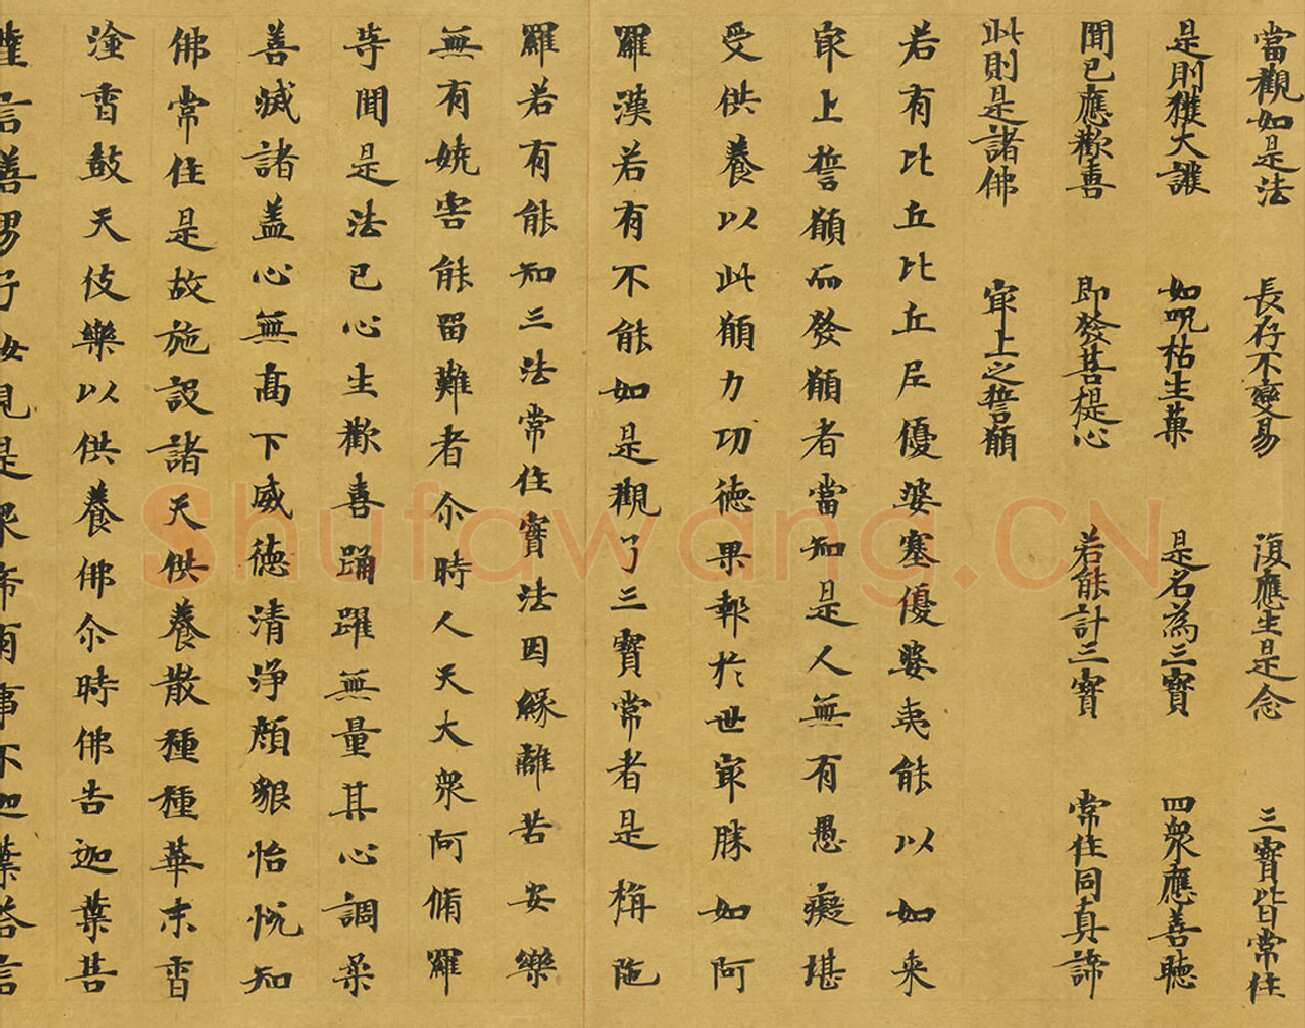 當觀如是法 長存不變易 復應生是念 三寶皆常住
是則獲大護 如呪枯生菓 是名為三寶 四眾應善聽
聞已應歡喜 即發菩提心 若能計三寶 常住同真諦
此則是諸佛 冣上之誓願
若有比丘比丘尼優婆塞優婆夷能以如来
冣上誓願而發願者當知是人無有愚癡堪
受供養以此願力功德果報於世冣勝如阿
羅漢若有不能如是觀了三寶常者是栴陁
羅若有能知三法常住實法因緣離苦安樂
無有嬈害能留難者尒時人天大眾阿脩羅
等聞是法已心生歡喜踊躍無量其心調柔
善滅諸盖心無高下威德清淨顏貌怡恱知
佛常住是故施設諸天供養散種種華末香
塗香鼓天伎樂以供養佛尒時佛告迦葉菩
薩言善男子汝見是眾希有事不迦葉荅言
Shufawang.CN